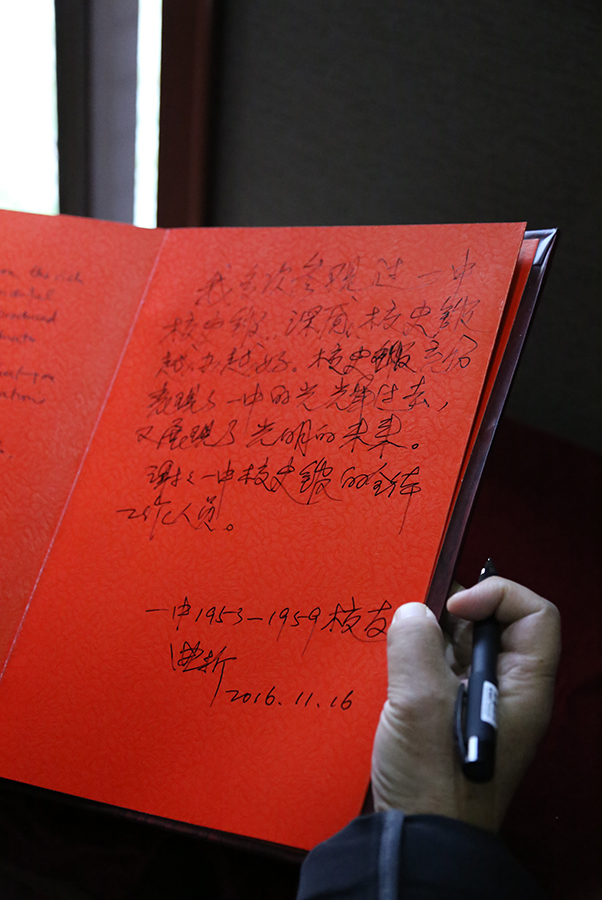 on the
我多次参观过一中
校史馆，深感校史馆
越办越好。校史馆充份
表现了一中的光辉过去，
又展现了光明的未来。
谢谢一中校史馆的全体
工作人员。
一中1953—1959校友
2016.11.16